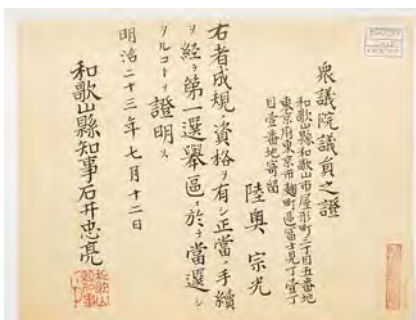 衆議院議員之證
和歌山縣和歌山市屋形町三丁目五番地
東京府東京市麹町區富士見丁壹丁
目壹番地寄留
陸奥宗光
右者成規ノ資格ヲ有シ正當ノ手續
ヲ經テ第一選擧區ニ於テ當選シ
タルコトヲ證明ス
明治二十三年七月十二日
和歌山縣知事石井忠亮